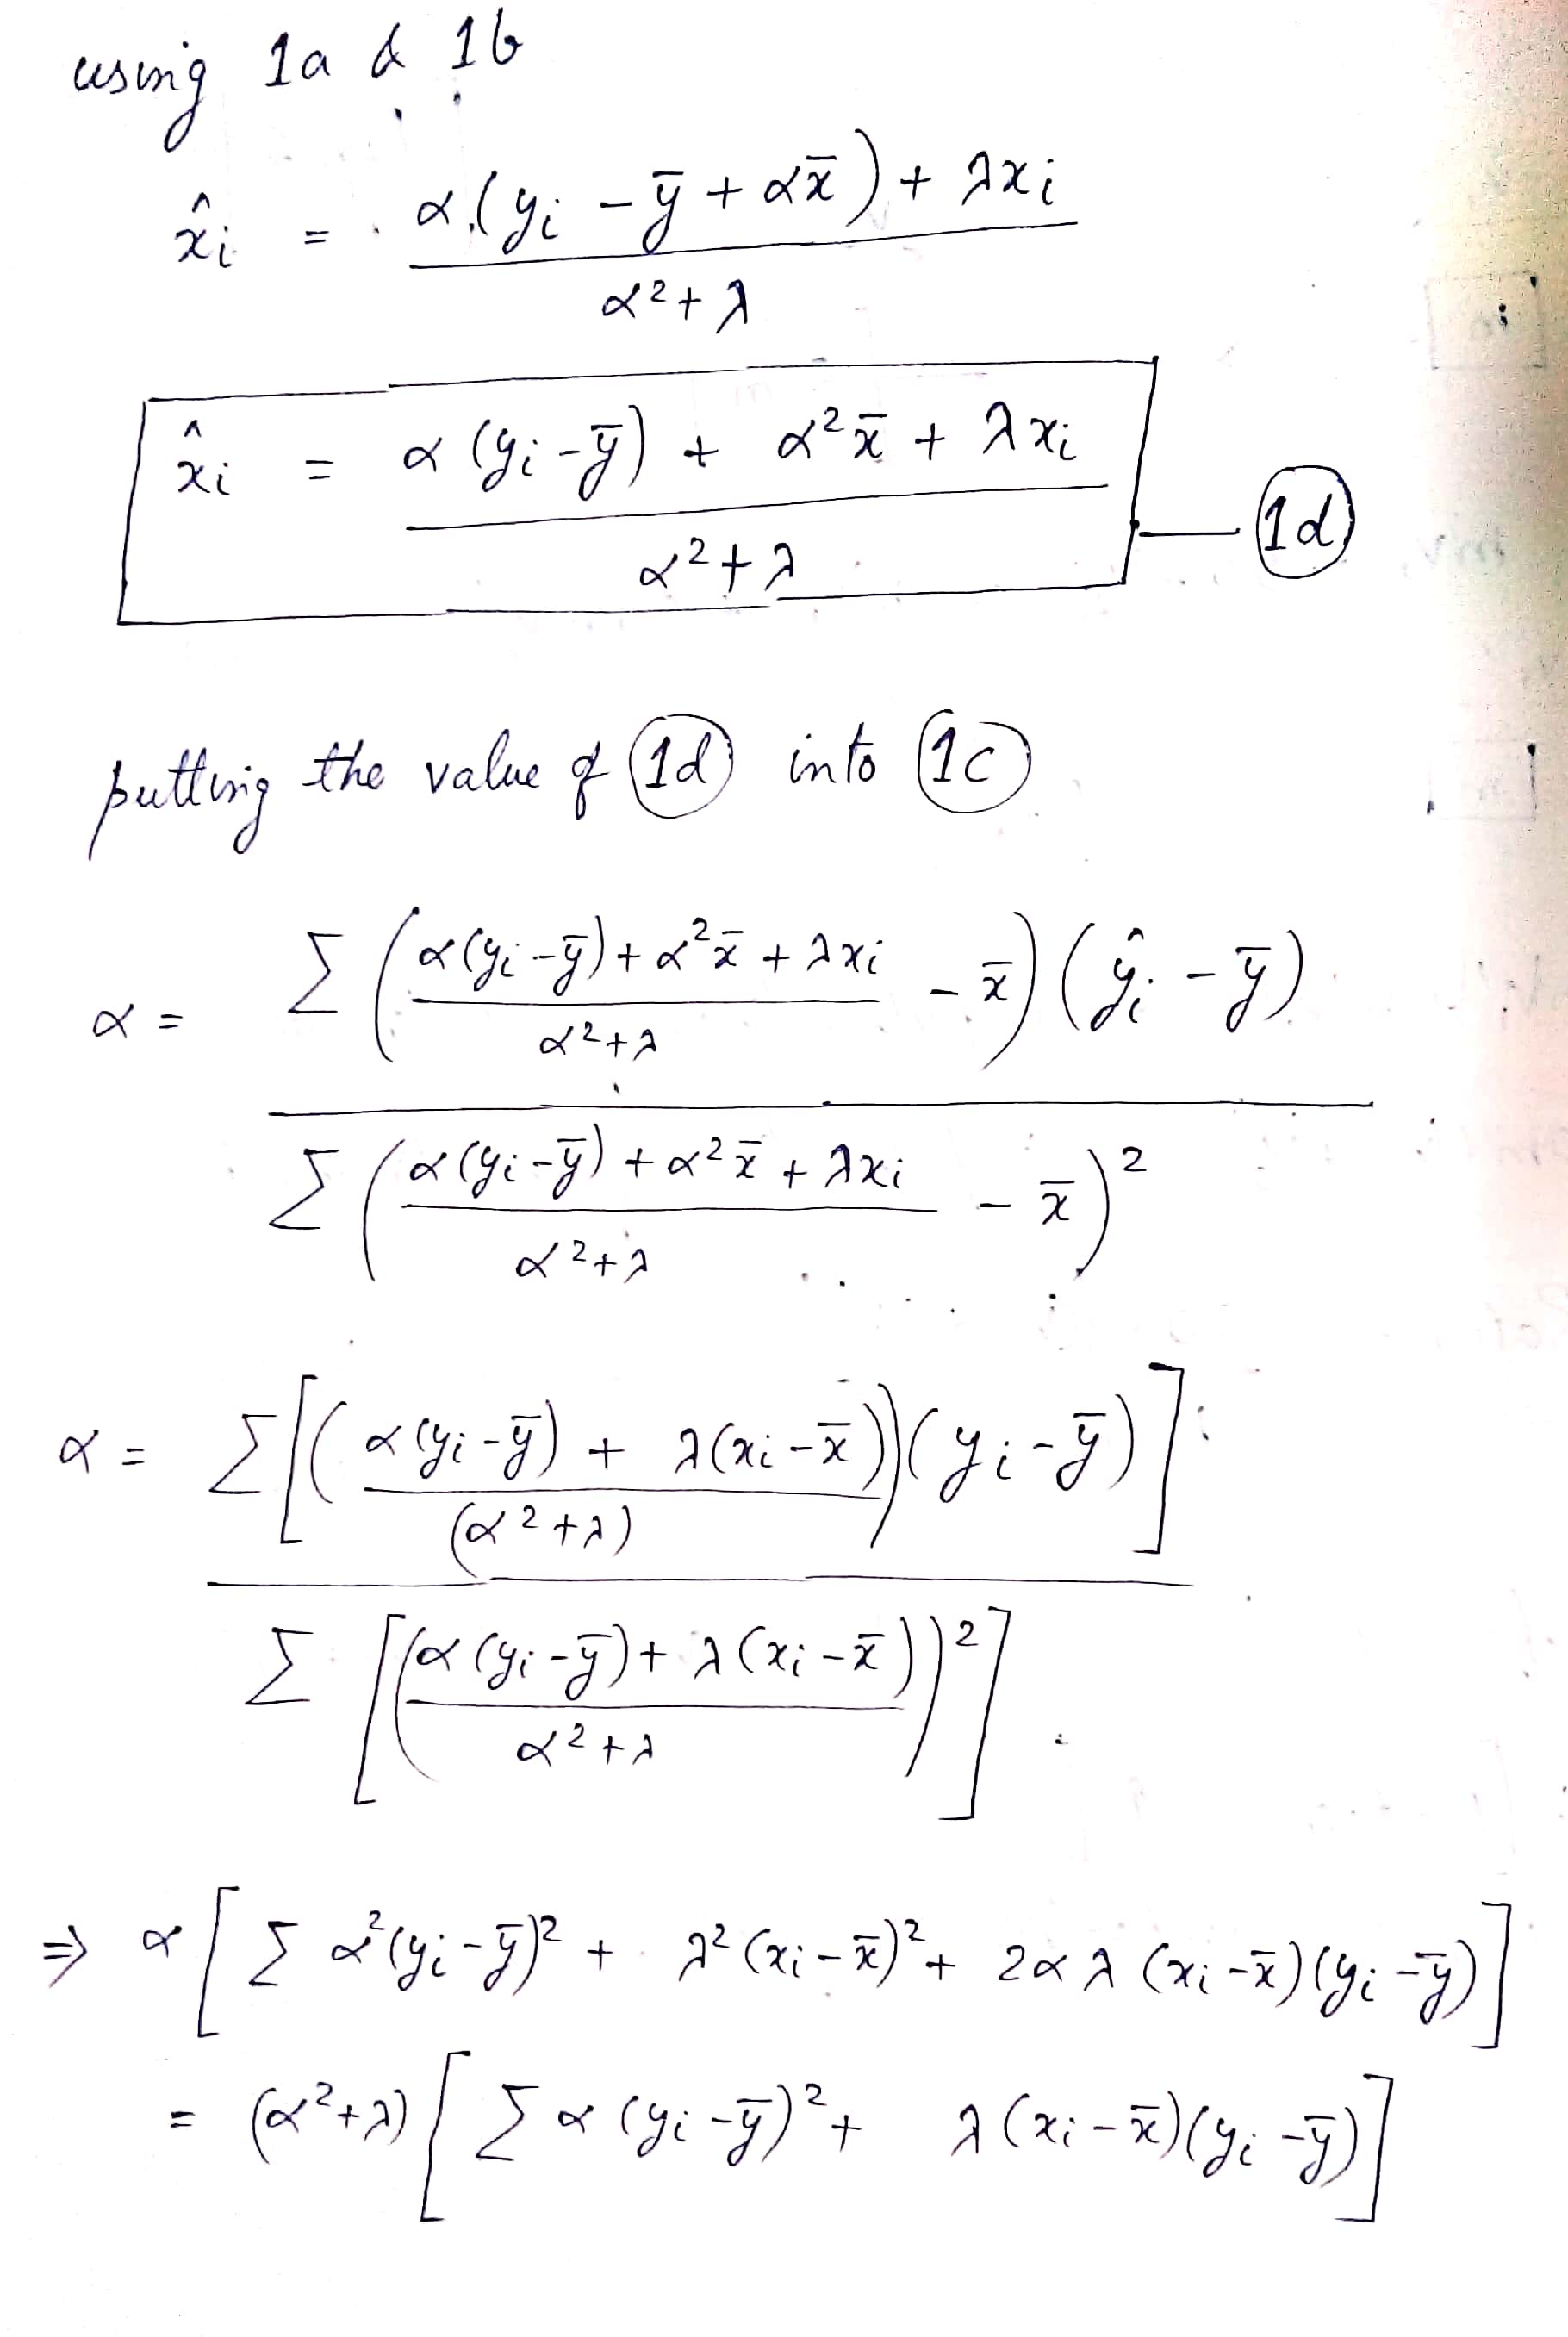 using 1a & 1b
x̂i = α(yi - ȳ + αx̄) + λxi / α² + λ
x̂i = α(yi - ȳ) + α²x̄ + λxi / α² + λ — (1d)
putting the value of (1d) into (1c)
α = Σ(α(yi - ȳ) + α²x̄ + λxi / α² + λ - x̄)(ŷi - ȳ)
Σ(α(yi - ȳ) + α²x̄ + λxi / α² + λ - x̄)²
α = Σ[(α(yi - ȳ) + λ(xi - x̄) / (α² + λ))(yi - ȳ)]
Σ[(α(yi - ȳ) + λ(xi - x̄) / α² + λ)²]
⇒ α[Σ α²(yi - ȳ)² + λ²(xi - x̄)² + 2αλ(xi - x̄)(yi - ȳ)]
= (α² + λ)[Σ α(yi - ȳ)² + λ(xi - x̄)(yi - ȳ)]